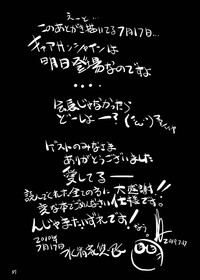 えーと…
このあとがき描いてる7月17日…
キャプテンシャインは
明日登場なのですよ
・・・・
どーしよー?
ゲストのみなさま
ありがとうございました
愛してるー
読んでくれた全ての方に大感謝!
変な本でごめんなさい仕様です!
んじゃまたいずれです!
2010年
7月17日